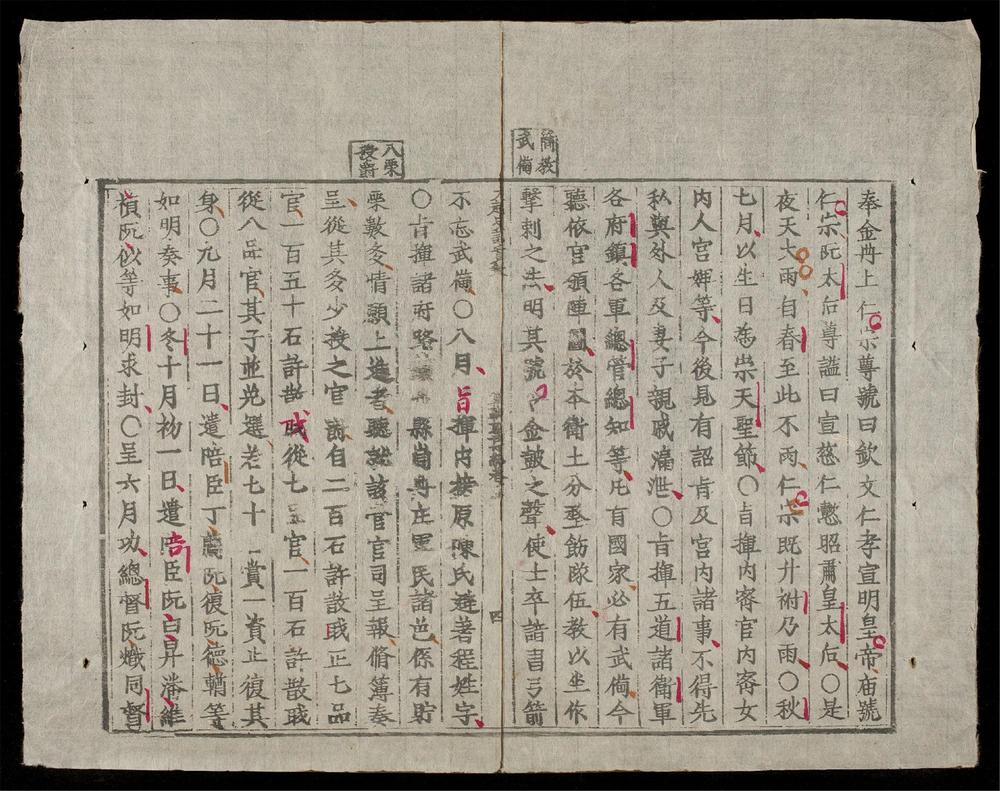 簡教
武備
奉金冊上仁宗尊號曰欽文仁孝宣明皇帝庙號
仁宗阮太后尊謚曰宣慈仁懿昭肅皇太后〇是
夜天大雨自春至此不雨仁宗既升祔乃雨〇秋
七月以生日為崇天聖節〇旨揮内密官内密女
内人宫婢等今後見有詔旨及宫内諸事不得先
私與外人及妻子親戚漏泄〇旨揮五道諸衛軍
各府鎮各軍總管總知等凡有國家必有武俻今
聽依官領陣圖於本衛土分整飭隊伍教以坐作
擊刺之法明其號令金皷之聲使士卒諳習弓箭
四
八粟
授爵
不忘武俻〇八月旨揮内接原陳氏避著程姓字
〇旨揮諸府路鎮州縣嵓册庄里民諸邑係有貯
粟數多情願上進者聽就該官官司呈報脩簿奏
呈從其多少授之官爵自二百石許散職正七品
官一百五十石許散職從七品官一百石許散職
從八品官其子並免選若七十 賞一資止復其
身〇九月二十一日遣陪臣丁薦阮復阮德輶等
如明奏事〇冬十月初一日遣陪臣阮白昇潘維
禎阮似等如明求封〇呈六月功總督阮熾同督